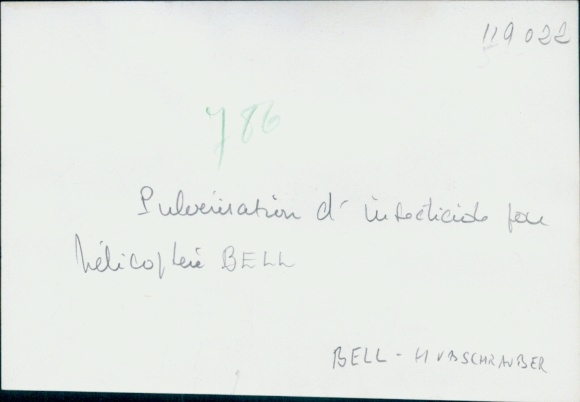 119 022
786
Pulvérisation d'insecticide par
hélicoptère BELL
BELL - HUBSCHRAUBER